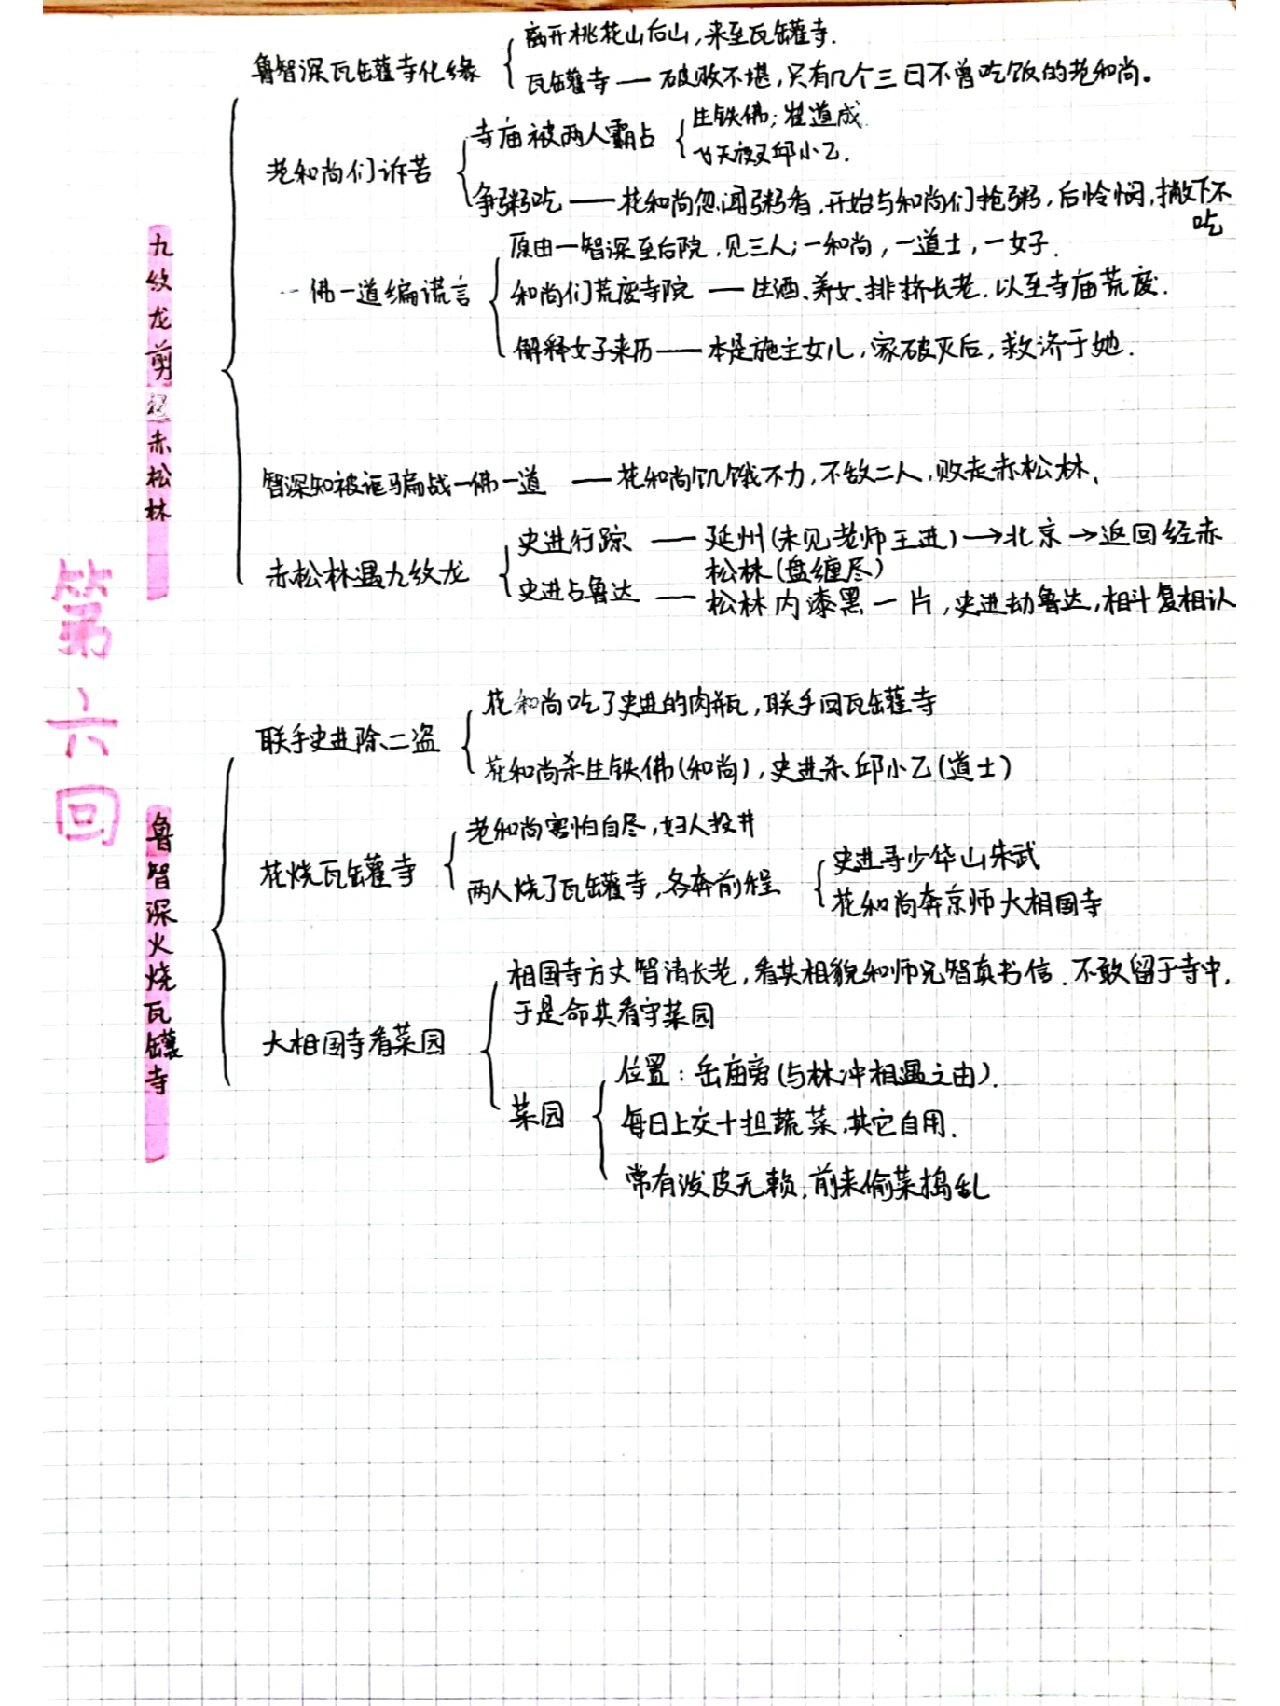 第六回
九纹龙剪径赤松林
鲁智深瓦罐寺化缘
离开桃花山后山，来至瓦罐寺.
瓦罐寺——破败不堪，只有几个三日不曾吃饭的老和尚。
老和尚们诉苦
寺庙被两人霸占
生铁佛；崔道成.
飞天夜叉邱小乙.
争粥吃——花和尚忽闻粥香，开始与和尚们抢粥，后怜悯，撇下不
吃
一佛一道编谎言
原由一智深至后院，见三人；一和尚，一道士，一女子.
和尚们荒废寺院——生酒、养女、排挤长老.以至寺庙荒废.
解释女子来历——本是施主女儿，家破灭后，救济于她.
智深知被诓骗战一佛一道——花和尚饥饿不力，不敌二人，败走赤松林.
赤松林遇九纹龙
史进行踪——延州(未见老师王进)→北京→返回经赤
松林(盘缠尽)
史进占鲁达——松林内漆黑一片，史进劫鲁达，相斗复相认
鲁智深火烧瓦罐寺
联手史进除二盗
花和尚吃了史进的肉瓶，联手回瓦罐寺
花和尚杀生铁佛(和尚)，史进杀邱小乙(道士)
花烧瓦罐寺
老和尚害怕自尽，妇人投井
两人烧了瓦罐寺，各奔前程
史进寻少华山朱武
花和尚奔京师大相国寺
大相国寺看菜园
相国寺方丈智清长老，看其相貌和师兄智真书信.不敢留于寺中，
于是命其看守菜园
菜园
位置：岳庙旁(与林冲相遇之由).
每日上交十担蔬菜，其它自用.
常有泼皮无赖，前来偷菜捣乱